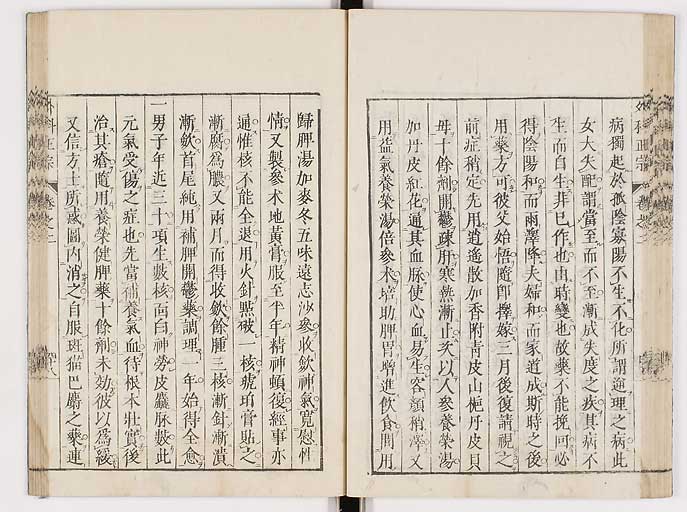 病獨起於孤陰寡陽不生不化所謂逆理之病此
女大失配謂當至而不至漸成失度之疾其病不
生而自生非已作也由時變也故藥不能挽回必
得陰陽和而雨澤降夫婦和而家道成斯時之後
用藥方可彼父始悟隨即擇嫁三月後復請視之
前症稍定先用逍遙散加香附青皮山梔丹皮貝
母十餘劑開鬱疎肝寒熱漸止次以人參養榮湯
加丹皮紅花通其血脉使心血易生容顏稍澤又
用益氣養榮湯倍參朮培助脾胃膳進飲食間用
外科正宗 卷之二
歸脾湯加麥冬五味遠志沙參收歛神氣寬慰性
情又製參朮地黃膏服至半年精神頓復經事亦
通惟核不能全退用火針㸃破一核琥珀膏貼之
漸腐爲膿又兩月而得收歛餘腫三核漸針漸潰
漸歛首尾純用補脾開鬱藥調理一年始得全愈
一男子年近三十項生數核面白神勞皮𩆜脉數此
元氣受傷之症也先當補養氣血待根本壯實後
治其瘡隨用養榮健脾藥十餘劑未効彼以爲緩
又信方士所惑圖内消之自服斑猫巴麝之藥連
外科正宗 卷之二